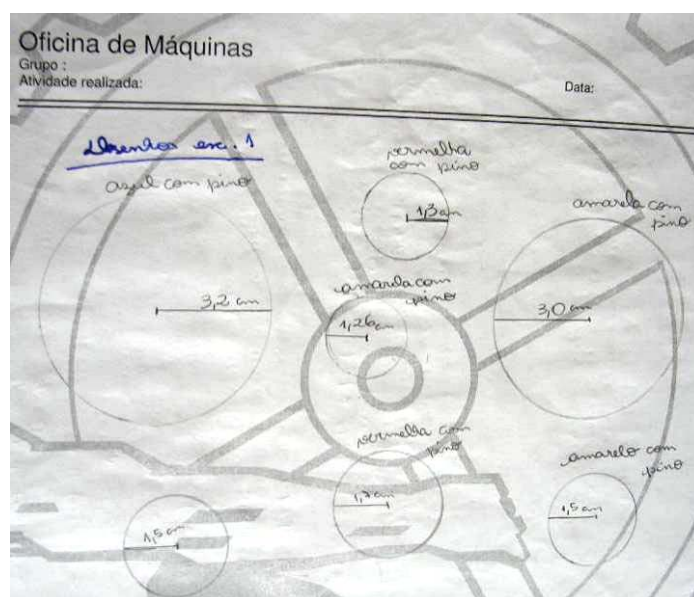 Oficina de Máquinas
Grupo :
Atividade realizada:
Data:
Desenhos exc. 1
azul com pino
vermelha
com pino
amarela com
pino
3,2 cm
1,3 cm
amarela com
pino
1,26 cm
3,0 cm
vermelha com
pino
amarelo com
pino
1,5 cm
1,7 cm
1,5 cm